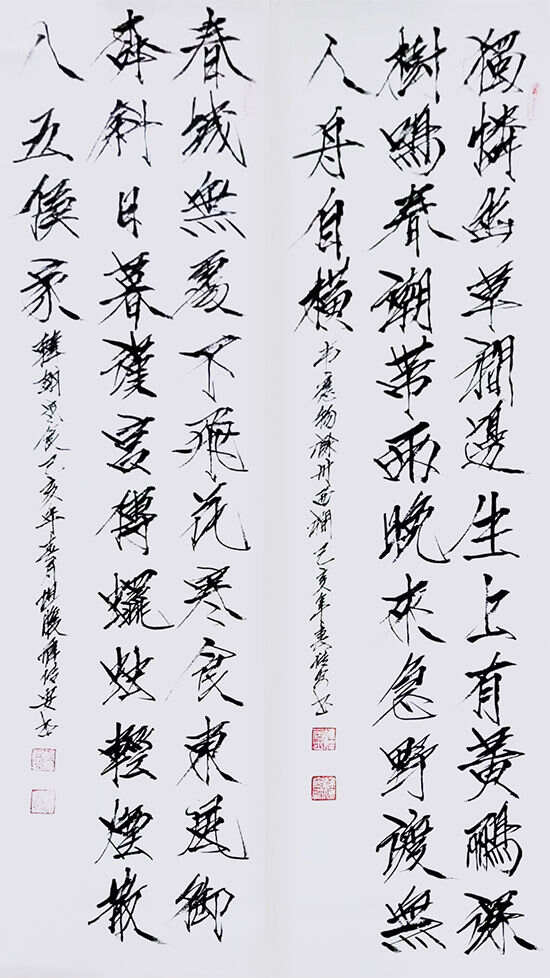 獨憐幽草澗邊生上有黃鸝深
樹鳴春潮帶雨晚來急野渡無
人舟自橫
书應物滁州西澗己亥年
春城無處不飛花寒食東風御
柳斜日暮漢宮傳蠟燭輕煙散
入五侯家
韓翃寒食己亥年